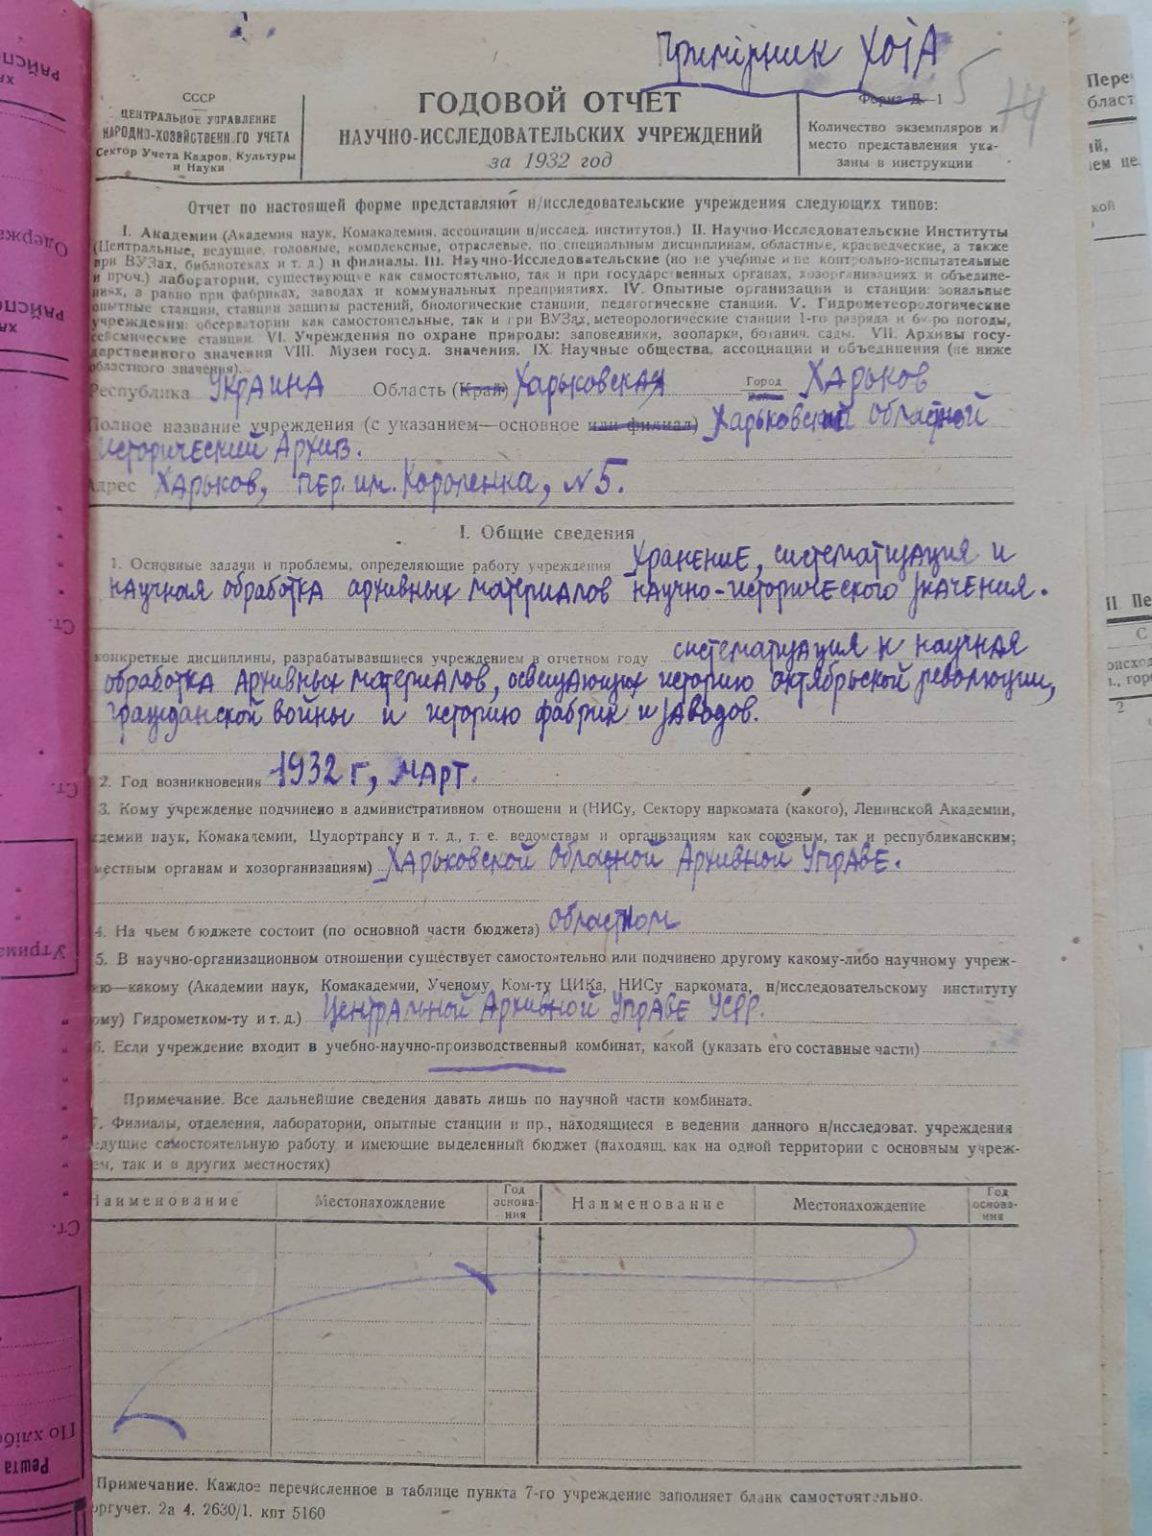 Примірник ХОІА
5 74
СССР
ЦЕНТРАЛЬНОЕ УПРАВЛЕНИЕ
НАРОДНО-ХОЗЯЙСТВЕННОГО УЧЕТА
Сектор Учета Кадров, Культуры
и Науки
ГОДОВОЙ ОТЧЕТ
НАУЧНО-ИССЛЕДОВАТЕЛЬСКИХ УЧРЕЖДЕНИЙ
за 1932 год
Форма Д-1
Количество экземпляров и
место представления ука-
заны в инструкции
Отчет по настоящей форме представляют н/исследовательские учреждения следующих типов:
I. Академии (Академия наук, Комакадемия, ассоциации н/исслед. институтов.) II. Научно-Исследовательские Институты
(Центральные, ведущие, головные, комплексные, отраслевые, по специальным дисциплинам, областные, краеведческие, а также
при ВУЗах, библиотеках и т. д.) и филиалы. III. Научно-Исследовательские (но не учебные и не контрольно-испытательные
и проч.) лаборатории, существующие как самостоятельно, так и при государственных органах, хозорганизациях и объедине-
ниях, а равно при фабриках, заводах и коммунальных предприятиях. IV. Опытные организации и станции: зональные
опытные станции, станции защиты растений, биологические станции, педагогические станции. V. Гидрометеорологические
учреждения: обсерватории как самостоятельные, так и при ВУЗах, метеорологические станции 1-го разряда и бюро погоды,
сейсмические станции. VI. Учреждения по охране природы: заповедники, зоопарки, ботанич. сады. VII. Архивы госу-
дарственного значения VIII. Музеи госуд. значения. IX. Научные общества, ассоциации и объединения (не ниже
областного значения).
Республика Украина Область (Край) Харьковская Город Харьков
Полное название учреждения (с указанием—основное или филиал) Харьковский Областной
Исторический Архив.
Адрес Харьков, пер. им. Короленка, №5.
I. Общие сведения
1. Основные задачи и проблемы, определяющие работу учреждения Хранение, систематизация и
научная обработка архивных материалов научно-исторического значения.
конкретные дисциплины, разрабатывавшиеся учреждением в отчетном году систематизация и научная
обработка архивных материалов, освещающих историю октябрьской революции,
гражданской войны и историю фабрик и заводов.
2. Год возникновения 1932 г, март.
3. Кому учреждение подчинено в административном отношени и (НИСу, Сектору наркомата (какого), Ленинской Академии,
адемии наук, Комакадемии, Цудортрансу и т. д., т. е. ведомствам и организациям как союзным, так и республиканским;
местным органам и хозорганизациям) Харьковской Областной Архивной Управе.
4. На чьем бюджете состоит (по основной части бюджета) областном
5. В научно-организационном отношении существует самостоятельно или подчинено другому какому-либо научному учреж-
ю—какому (Академии наук, Комакадемии, Ученому Ком-ту ЦИКа, НИСу наркомата, н/исследовательскому институту
ому) Гидрометком-ту и т. д.) Центральной Архивной Управе УСРР.
6. Если учреждение входит в учебно-научно-производственный комбинат, какой (указать его составные части)
Примечание. Все дальнейшие сведения давать лишь по научной части комбината.
7. Филиалы, отделения, лаборатории, опытные станции и пр., находящиеся в ведении данного н/исследоват. учреждения
едущие самостоятельную работу и имеющие выделенный бюджет (находящ. как на одной территории с основным учреж-
ем, так и в других местностях)
Наименование Местонахождение Год основа- ния Наименование Местонахождение Год основа- ния
Примечание. Каждое перечисленное в таблице пункта 7-го учреждение заполняет бланк самостоятельно.
оргучет. 2а 4. 2630/1. кпт 5160